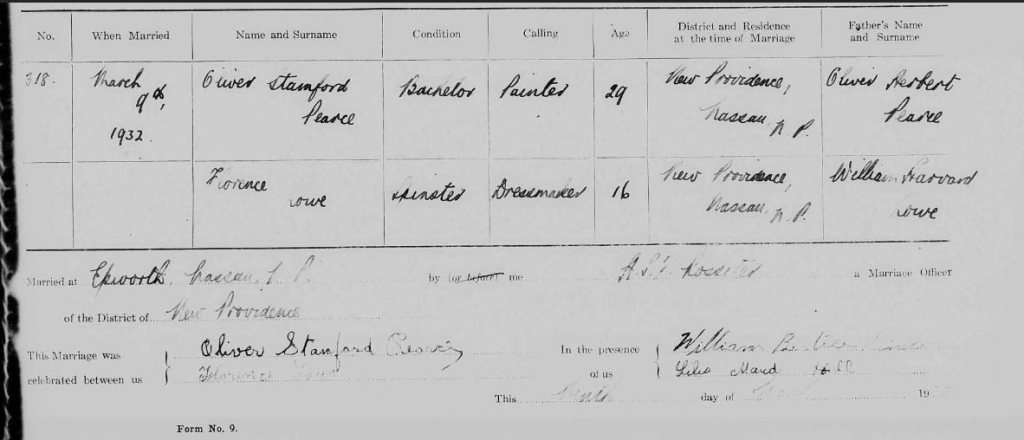 No. When Married Name and Surname Condition Calling Age District and Residence at the time of Marriage Father's Name and Surname
318. March 9th, 1932 Oliver Stamford Pearce Bachelor Painter 29 New Providence, Nassau, N. P. Oliver Herbert Pearce
Florence Lowe Spinster Dressmaker 16 New Providence, Nassau, N. P. William Harvard Lowe
Married at Epworth, Nassau, N. P. by (or before) me Rossiter a Marriage Officer
of the District of New Providence
This Marriage was celebrated between us Oliver Stamford Pearce
Florence Lowe
In the presence of us William
Maud
This Ninth day of March 19
Form No. 9.